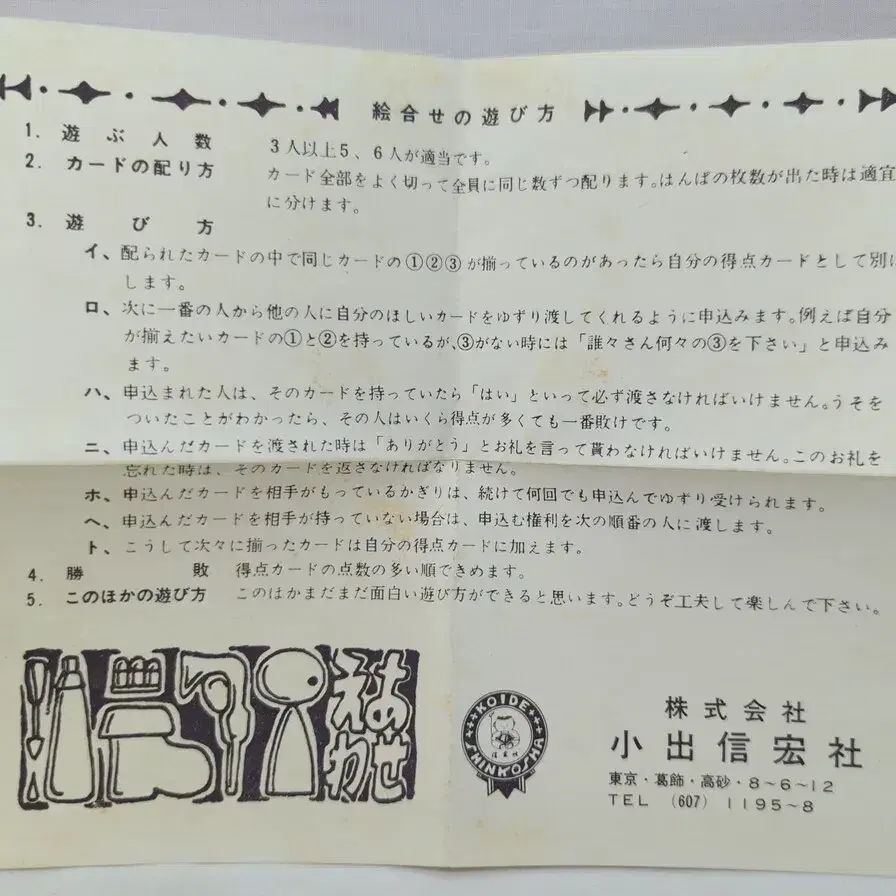 絵合せの遊び方
1. 遊ぶ人数 3人以上5、6人が適当です。
2. カードの配り方 カード全部をよく切って全員に同じ数ずつ配ります。はんぱの枚数が出た時は適宜
に分けます。
3. 遊び方
イ、配られたカードの中で同じカードの①②③が揃っているのがあったら自分の得点カードとして別に
します。
ロ、次に一番の人から他の人に自分のほしいカードをゆずり渡してくれるように申込みます。例えば自分
が揃えたいカードの①と②を持っているが、③がない時には「誰々さん何々の③を下さい」と申込み
ます。
ハ、申込まれた人は、そのカードを持っていたら「はい」といって必ず渡さなければいけません。うそを
ついたことがわかったら、その人はいくら得点が多くても一番敗けです。
ニ、申込んだカードを渡された時は「ありがとう」とお礼を言って貰わなければいけません。このお礼を
忘れた時は、そのカードを返さなければなりません。
ホ、申込んだカードを相手がもっているかぎりは、続けて何回でも申込んでゆずり受けられます。
ヘ、申込んだカードを相手が持っていない場合は、申込む権利を次の順番の人に渡します。
ト、こうして次々に揃ったカードは自分の得点カードに加えます。
4. 勝敗 得点カードの点数の多い順できめます。
5. このほかの遊び方 このほかまだまだ面白い遊び方ができると思います。どうぞ工夫して楽しんで下さい。
えあわせ
KOIDE
SHINKOSHA
株式会社
小出信宏社
東京・葛飾・高砂・8~6~12
TEL (607) 1195~8